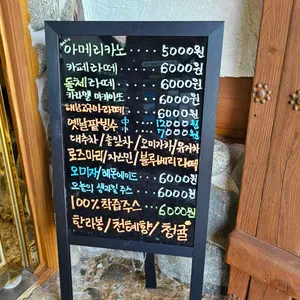 아메리카노 ···· 5000원
카페라떼 ···· 6000원
돌체라떼 ···· 6000원
카라멜 마끼아또 6000원
6000원
옛날팥빙수 中 12000원
小 7000원
대추차/솔잎차/오미자차/유자차
로즈마리/자스민/블루베리라떼
오미자/레몬에이드 ·· 6000원
오늘의 생과일 주스 ··· 6000원
100% 착즙주스 ··· 6000원
한라봉/천혜향/청귤